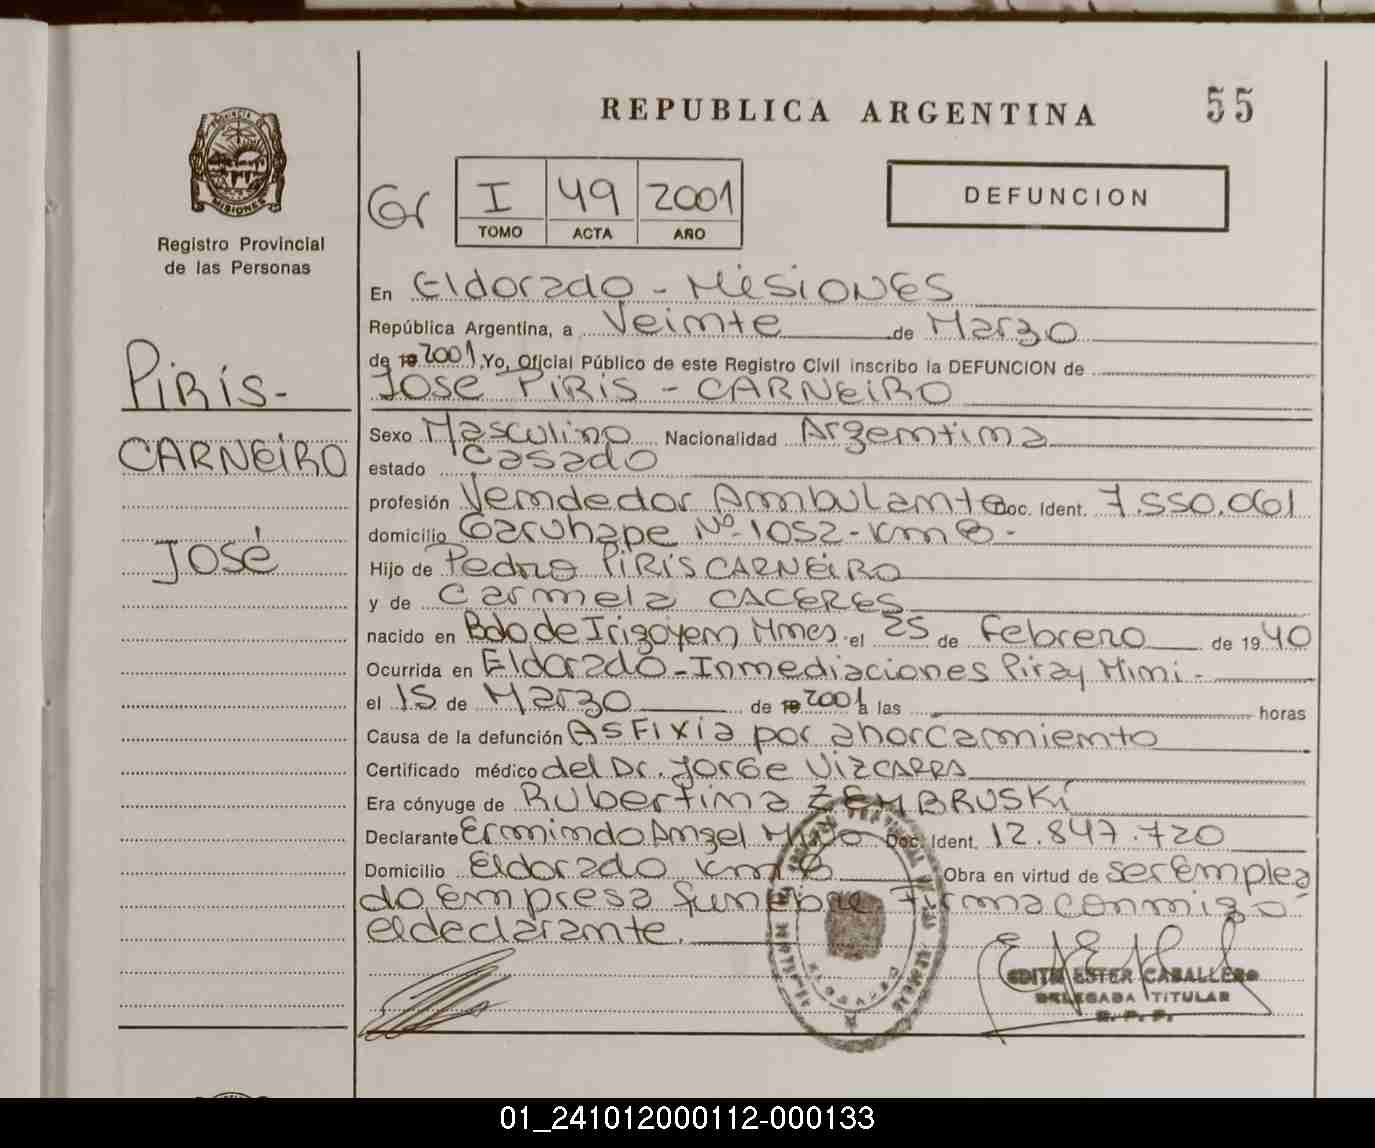 REPUBLICA ARGENTINA
55
PROVINCIA DE
MISIONES
Registro Provincial
de las Personas
Gr
I 49 2001
TOMO ACTA AÑO
DEFUNCION
PIRÍS-
CARNEIRO
JOSÉ
En Eldorado - MISIONES
República Argentina, a Veinte de Marzo
de 19 2001, Yo, Oficial Público de este Registro Civil inscribo la DEFUNCION de
JOSE PIRIS - CARNEIRO
Sexo Masculino Nacionalidad Argentina
estado Casado
profesión Vendedor Ambulante Doc. Ident. 7.550.061
domicilio Garuhape Nº 1052 - Km 8 -
Hijo de Pedro PIRIS CARNEIRO
y de Carmela CACERES
nacido en Bdo de Irigoyen Mnes. el 25 de Febrero de 1940
Ocurrida en Eldorado - Inmediaciones Piray Mini -
el 15 de Marzo de 19 2001 a las horas
Causa de la defunción ASFIXIA por ahorcamiento
Certificado médico del Dr. JORGE VIZCARRA
Era cónyuge de Rubertina ZEMBRUSKI
Declarante Ermindo Angel Doc. Ident. 12.847.720
Domicilio Eldorado Km 8 Obra en virtud de ser Emplea
do Empresa funebre Firma conmigo
el declarante.
EDITH ESTER CABALLERO
DELEGADA TITULAR
R. P. P.
ELDORADO
01_241012000112-000133